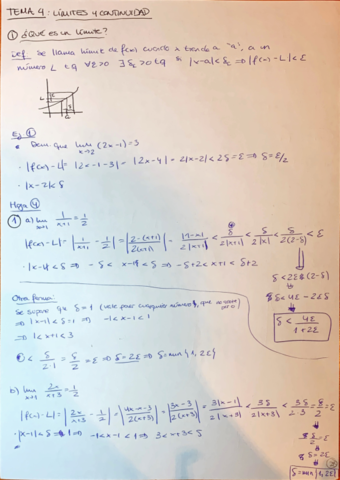 TEMA 4: LÍMITES Y CONTINUIDAD
① ¿QUÉ ES UN LÍMITE?
Def Se llama límite de f(x) cuando x tiende a "a", a un
número L tq ∀ε>0 ∃ δε>0 tq si |x-a|<δε ⇒ |f(x)-L|<ε
Ej 1
• Dem que lim x→2 (2x-1)=3
· |f(x)-L|= |2x-1-3|= |2x-4|= 2|x-2|<2δ=ε ⇒ δ=ε/2
· |x-2|<δ
Hoja 4
① a) lim x→1 1/(x+1) = 1/2
|f(x)-L|= |1/(x+1) - 1/2| = |(2-(x+1))/(2(x+1))| = |1-x|/(2|x+1|) < δ/(2|x+1|) < δ/(2|x|) < δ/(2(2-δ)) < ε
· |x-1|<δ ⇒ -δ< x-1<δ ⇒ -δ+2<x+1<δ+2
δ<2ε(2-δ)
δ<4ε-2εδ
δ< 4ε/(1+2ε)
Otra forma:
Se supone que δ=1 (vale para cualquier número
⇒ |x-1|<δ=1 ⇒ -1<x-1<1
⇒ 1<x+1<3
< δ/(2·1) = δ/2 = ε ⇒ δ=2ε ⇒ δ=min{1,2ε}
b) lim x→1 2x/(x+3) = 1/2
|f(x)-L|= |2x/(x+3) - 1/2| = |(4x-x-3)/(2(x+3))| = |3x-3|/(2|x+3|) = 3|x-1|/(2|x+3|) < 3δ/(2|x+3|) < 3δ/(2·3) = δ/2 = ε
· |x-1|<δ=1 ⇒ -1<x-1<1 ⇒ 3<x+3<5
δ/2=ε
δ=2ε
δ=min{1,2ε}